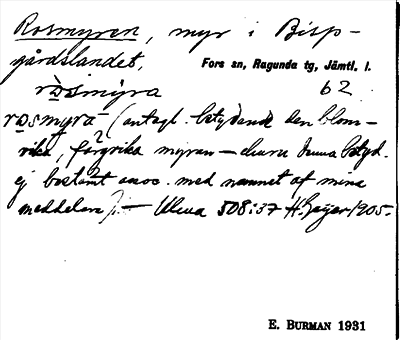 Rosmyren, myr i Bisp-
gårdslandet,
Fors sn, Ragunda tg, Jämtl. l.
62
rɷsmỳra
rɷsmyra (antagl. betydande den blom-
rika, färgrika myran — ehuru denna betyd.
ej bestämt assoc. med namnet af mina
meddelare). — Ulma 508:37 H. Geijer 1905.
E. BURMAN 1931